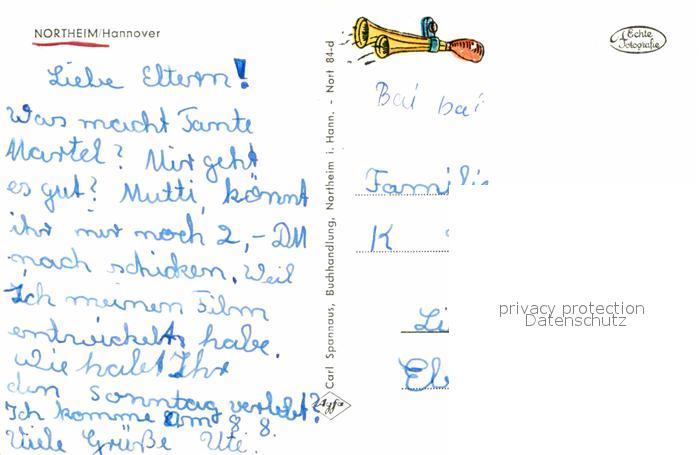 NORTHEIM/Hannover
Echte
Fotografie
Liebe Eltern!
Was macht Tante
Martel? Mir geht
es gut? Mutti, könnt
ihr mir noch 2,- DM
nach schicken. Weil
Ich meinen Film
entwickelt habe.
Wie habt Ihr
den Sonntag verlebt?
Ich komme am 8. 8.
Viele Grüße Ute.
Carl Spannaus, Buchhandlung, Northeim i. Hann. - Nort 84-d
Agfa
Bai bai
Familie
K
Li
El
privacy protection
Datenschutz